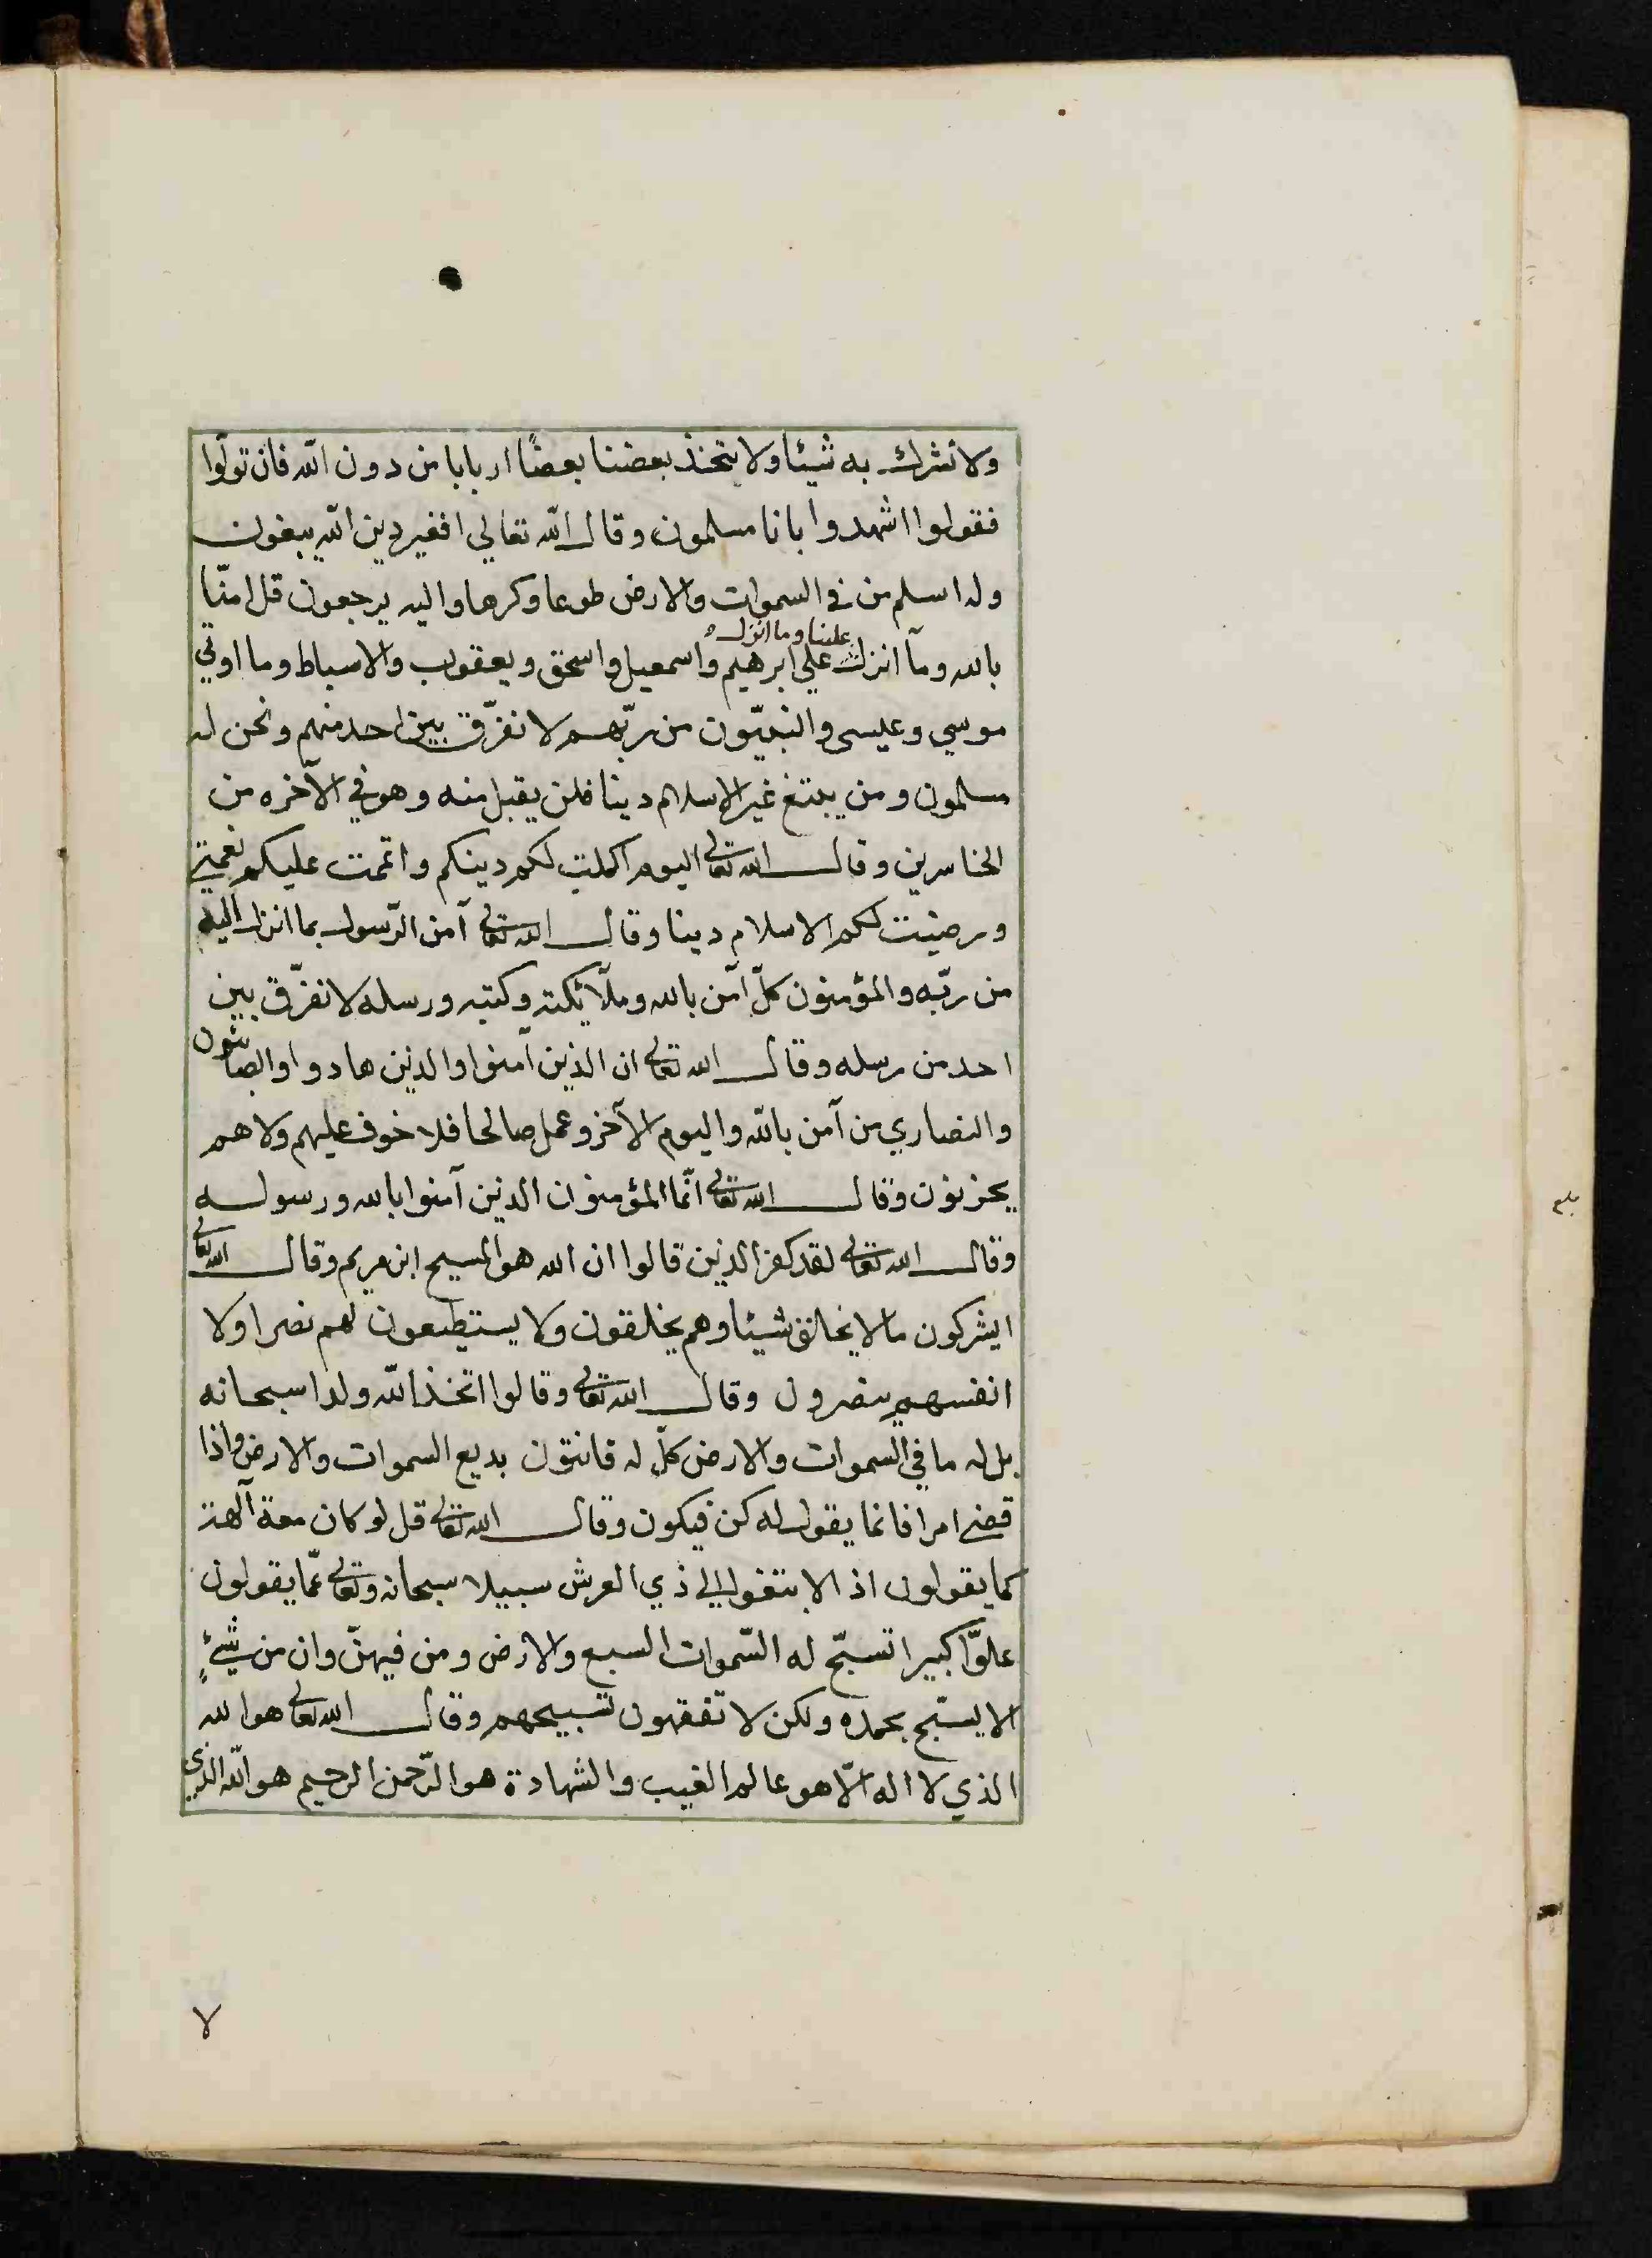 ولا نشرك به شيئا ولا يتخذ بعضنا بعضًا اربابا من دون الله فان تولّوا
فقولوا اشهدوا بانا مسلمون وقال الله تعالي افغير دين الله يبغون
وله اسلم من في السموات والارض طوعا وكرها واليه يرجعون قل امنّا
علينا وما انزل
بالله ومآ انزل علي ابرهيم واسمعيل واسحق ويعقوب والاسباط وما اوتي
موسي وعيسى والنبيّون من ربّهم لا نفرّق بين احد منهم ونحن له
مسلمون ومن يبتغ غير الاسلام دينا فلن يقبل منه وهو في الآخره من
الخاسرين وقال الله تعالى اليوم اكملت لكم دينكم واتممت عليكم نعمتي
ورضيت لكم الاسلام دينا وقال الله تعالى آمن الرّسول بما انزل اليه
من ربّه والمؤمنون كلّ آمن بالله وملآئكته وكتبه ورسله لا نفرّق بين
احد من رسله وقال الله تعالى ان الذين آمنوا والذين هادوا والصابئون
والنصاري من آمن بالله واليوم الآخر وعمل صالحا فلا خوف عليهم ولا هم
يحزنون وقال الله تعالى انّما المؤمنون الذين آمنوا بالله ورسوله
وقال الله تعالى لقد كفر الذين قالوا ان الله هو المسيح ابن مريم وقال الله تعالى
ايشركون ما لا يخلق شيئا وهم يخلقون ولا يستطيعون لهم نصرا ولا
انفسهم ينصرون وقال الله تعالى وقالوا اتخذ الله ولدا سبحانه
بل له ما في السموات والارض كلّ له قانتون بديع السموات والارض واذا
قضى امرا فانما يقول له كن فيكون وقال الله تعالى قل لو كان معه آلهة
كما يقولون اذا لابتغوا الي ذي العرش سبيلا سبحانه وتعالى عمّا يقولون
علوّا كبيرا تسبّح له السّموات السبع والارض ومن فيهنّ وان من شيءٍ
الا يسبّح بحمده ولكن لا تفقهون تسبيحهم وقال الله تعالى هو الله
الذي لا اله الّا هو عالم الغيب والشهادة هو الرّحمن الرحيم هو الله الذي
٧